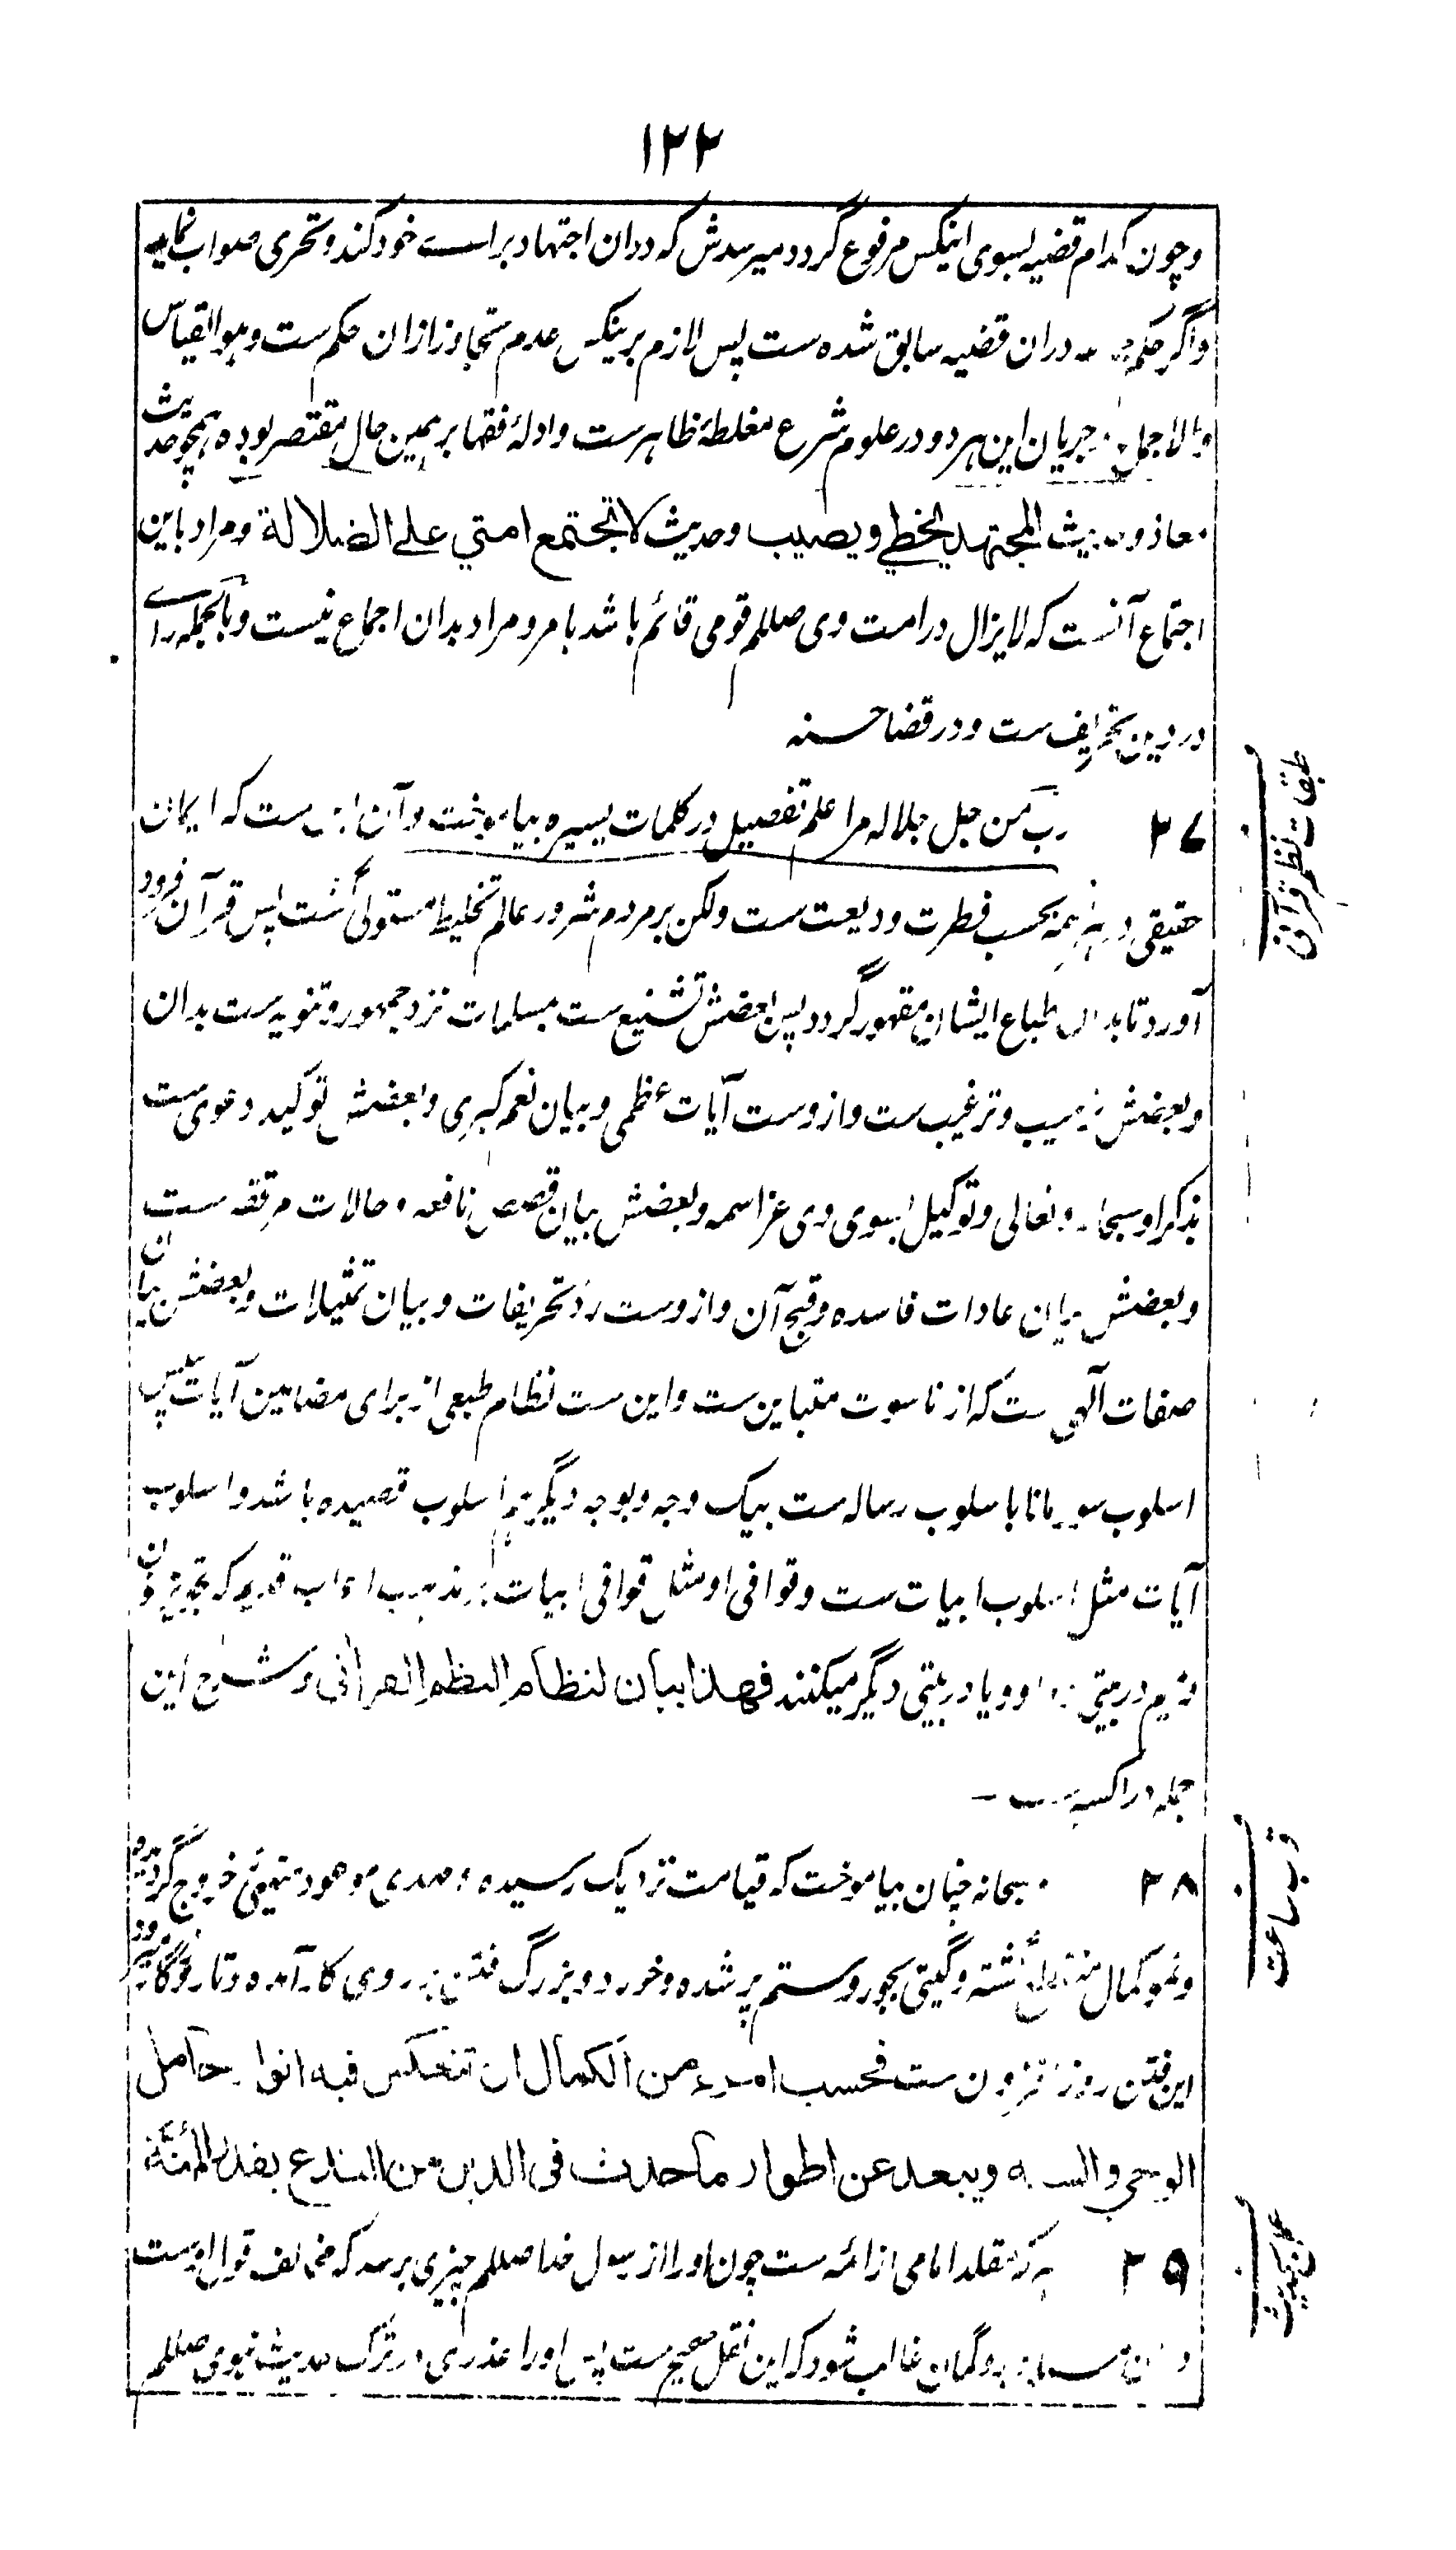 ۱۲۲
وچون کدام قضیه بسوی اینکس مرفوع گردد میرسدش که دران اجتهاد براے خود کند و تحری صواب نماید
واگر حکم دران قضیه سابق شده ست پس لازم برینکس عدم تجاوز ازان حکم ست وهو القیاس
وبالاجمال جریان این هر دو در علوم شرع مغلطۀ ظاهرست وادلۀ فقها بر همین حال مقتصر بوده همچو حدیث
معاذ وحدیث المجتهد یخطی ویصیب وحدیث لا تجتمع امتی علی الضلالة ومراد باین
اجتماع آنست که لایزال در امت وی صللم قومی قائم باشد بامر و مراد بدان اجماع نیست وبالجمله راے
در دین تحریف ست ودر قضا حسنه
طبقات نظم قرآن
۲۷ رب من جل جلاله مرا علم تفصیل در کلمات یسیره بیاموخت وآن این ست که ایمان
حقیقی در همه بحسب فطرت ودیعت ست ولکن بر مردم شرور عالم تخلیط مستولی گشت پس قرآن فرود
آورد تا بدان طباع ایشان مقهور گردد پس بعضش تشنیع ست بمسلمات نزد جمهور وتنویه ست بدان
وبعضش ترهیب وترغیب ست وازوست آیات عظمی وبیان نعم کبری وبعضش توکید دعوی ست
بذکر او سبحانه وتعالی وتوکیل بسوی وی عز اسمه وبعضش بیان قصص نافعه وحالات مرققه ست
وبعضش بیان عادات فاسده وقبح آن وازوست رد تحریفات وبیان تمثیلات وبعضش بیان
صفات آلهی ست که از ناسوت متباین ست واین ست نظام طبعی از برای مضامین آیات پس
اسلوب سور مانا باسلوب رساله ست بیک وجه وبوجه دیگر اسلوب قصیده باشد واسلوب
آیات مثل اسلوب ابیات ست وقوافی او مثل قوافی ابیات بر مذهب اعراب قدیم که تجویز
در بیتی ویا در بیتی دیگر میکنند فهذا بیان لنظام النظم القرآنی وشرح این
جمله در اکسیر ست
قرب ساعت
۲۸ سبحانه چنان بیاموخت که قیامت نزدیک رسیده ومهدی موعود خروج گردیده
ونمو کمال منقطع گشته وگیتی بجور وستم پر شده وخورد وبزرگ فتن بر روی کار آمده
این فتن روز افزون ست فحسب امرء من الکمال ان تنعکس فیه انوار حامل
الوحی والسنه ویبعد عن اطوار ما حدث فی الدین من البدع بقدر المنّة
عمل بحدیث
۲۹ هر که مقلد امامی از ائمه ست چون او را از رسول خدا صللم چیزی برسد که مخالف قول اوست
وگمان غالب شود که این نقل صحیح ست پس او را عذری در ترک حدیث نبوی صللم